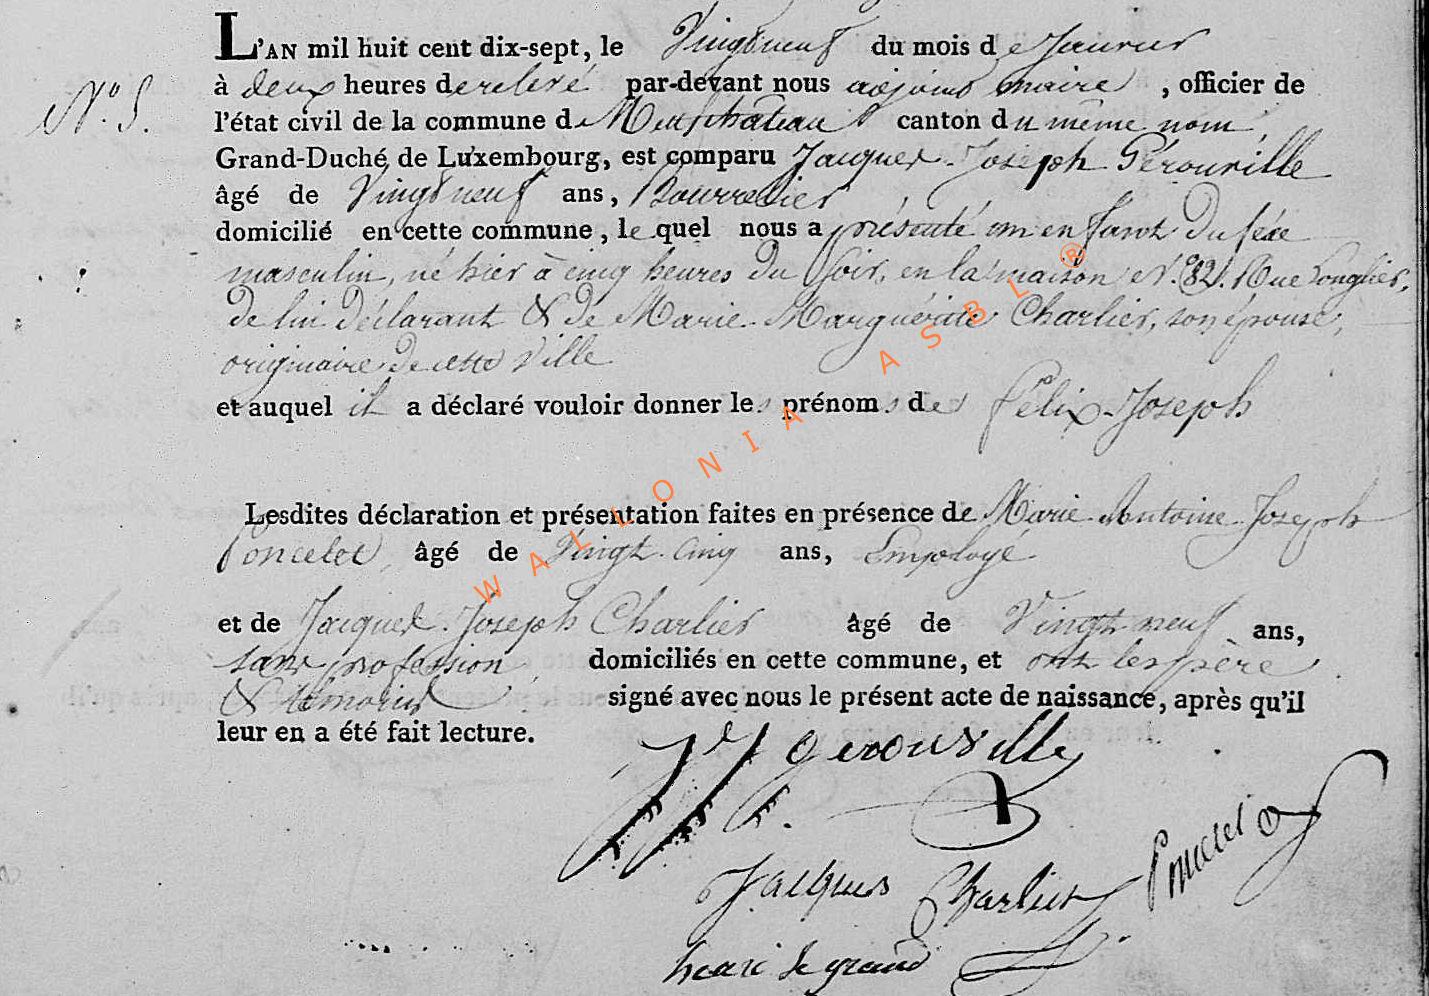 L'AN mil huit cent dix-sept, le Vingt neuf du mois de Janvier
N.º 5. à deux heures de relevé par-devant nous adjoint maire, officier de
l'état civil de la commune de Neufchâteau canton du même nom,
Grand-Duché de Luxembourg, est comparu Jacques-Joseph Gérouville
âgé de Vingt neuf ans, Bourrelier
domicilié en cette commune, lequel nous a présenté un enfant du séxe
masculin, né hier à cinq heures du soir, en la maison N.º 82. Rue Longlier,
de lui déclarant & de Marie-Marguérite Charlier, son épouse,
originaire de cette Ville
et auquel il a déclaré vouloir donner les prénoms de Félix-Joseph
Lesdites déclaration et présentation faites en présence de Marie-Antoine-Joseph
Poncelet, âgé de Vingt-Cinq ans, Employé
et de Jacques-Joseph Charlier âgé de Vingt neuf ans,
sans profession, domiciliés en cette commune, et ont les père
& témoins signé avec nous le présent acte de naissance, après qu'il
leur en a été fait lecture.
JJ gerouville
Poncelet
Jacques Charlier
henri le grand
WALLONIA ASBL ®